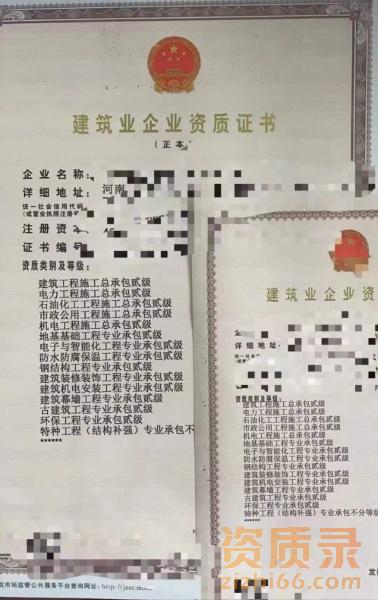 建筑业企业资质证书
(正本
企业名称:
详细地址: 河南
统一社会信用代码
(或营业执照注册
注册资
证书编号
资质类别及等级:
建筑工程施工总承包贰级
电力工程施工总承包贰级
石油化工工程施工总承包贰级
市政公用工程施工总承包贰级
机电工程施工总承包贰级
地基基础工程专业承包贰级
电子与智能化工程专业承包贰级
防水防腐保温工程专业承包贰级
钢结构工程专业承包贰级
建筑装修装饰工程专业承包贰级
建筑机电安装工程专业承包贰级
建筑幕墙工程专业承包贰级
古建筑工程专业承包贰级
环保工程专业承包贰级
特种工程(结构补强)专业承包不
******
筑市场监管公共服务平台查询网址:http://jzsc.moh
建筑业企业资
资质类别及等级:
建筑工程施工总承包贰级
电力工程施工总承包贰级
石油化工工程施工总承包贰级
市政公用工程施工总承包贰级
机电工程施工总承包贰级
地基基础工程专业承包贰级
电子与智能化工程专业承包贰级
防水防腐保温工程专业承包贰级
钢结构工程专业承包贰级
建筑装修装饰工程专业承包贰级
建筑机电安装工程专业承包贰级
建筑幕墙工程专业承包贰级
古建筑工程专业承包贰级
环保工程专业承包贰级
特种工程(结构补强)专业承包不分等级
******
发证
资质录
zizhi66.com